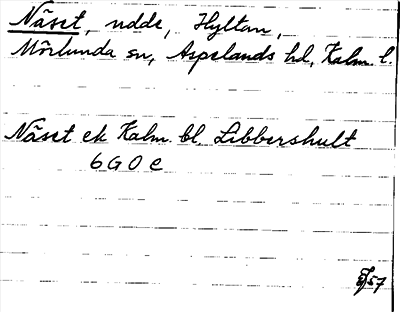 Näset, udde, Hyltan,
Mörlunda sn, Aspelands hd, Kalm. l.
Näset ek Kalm. bl. Libbershult
6 G 0 e
57